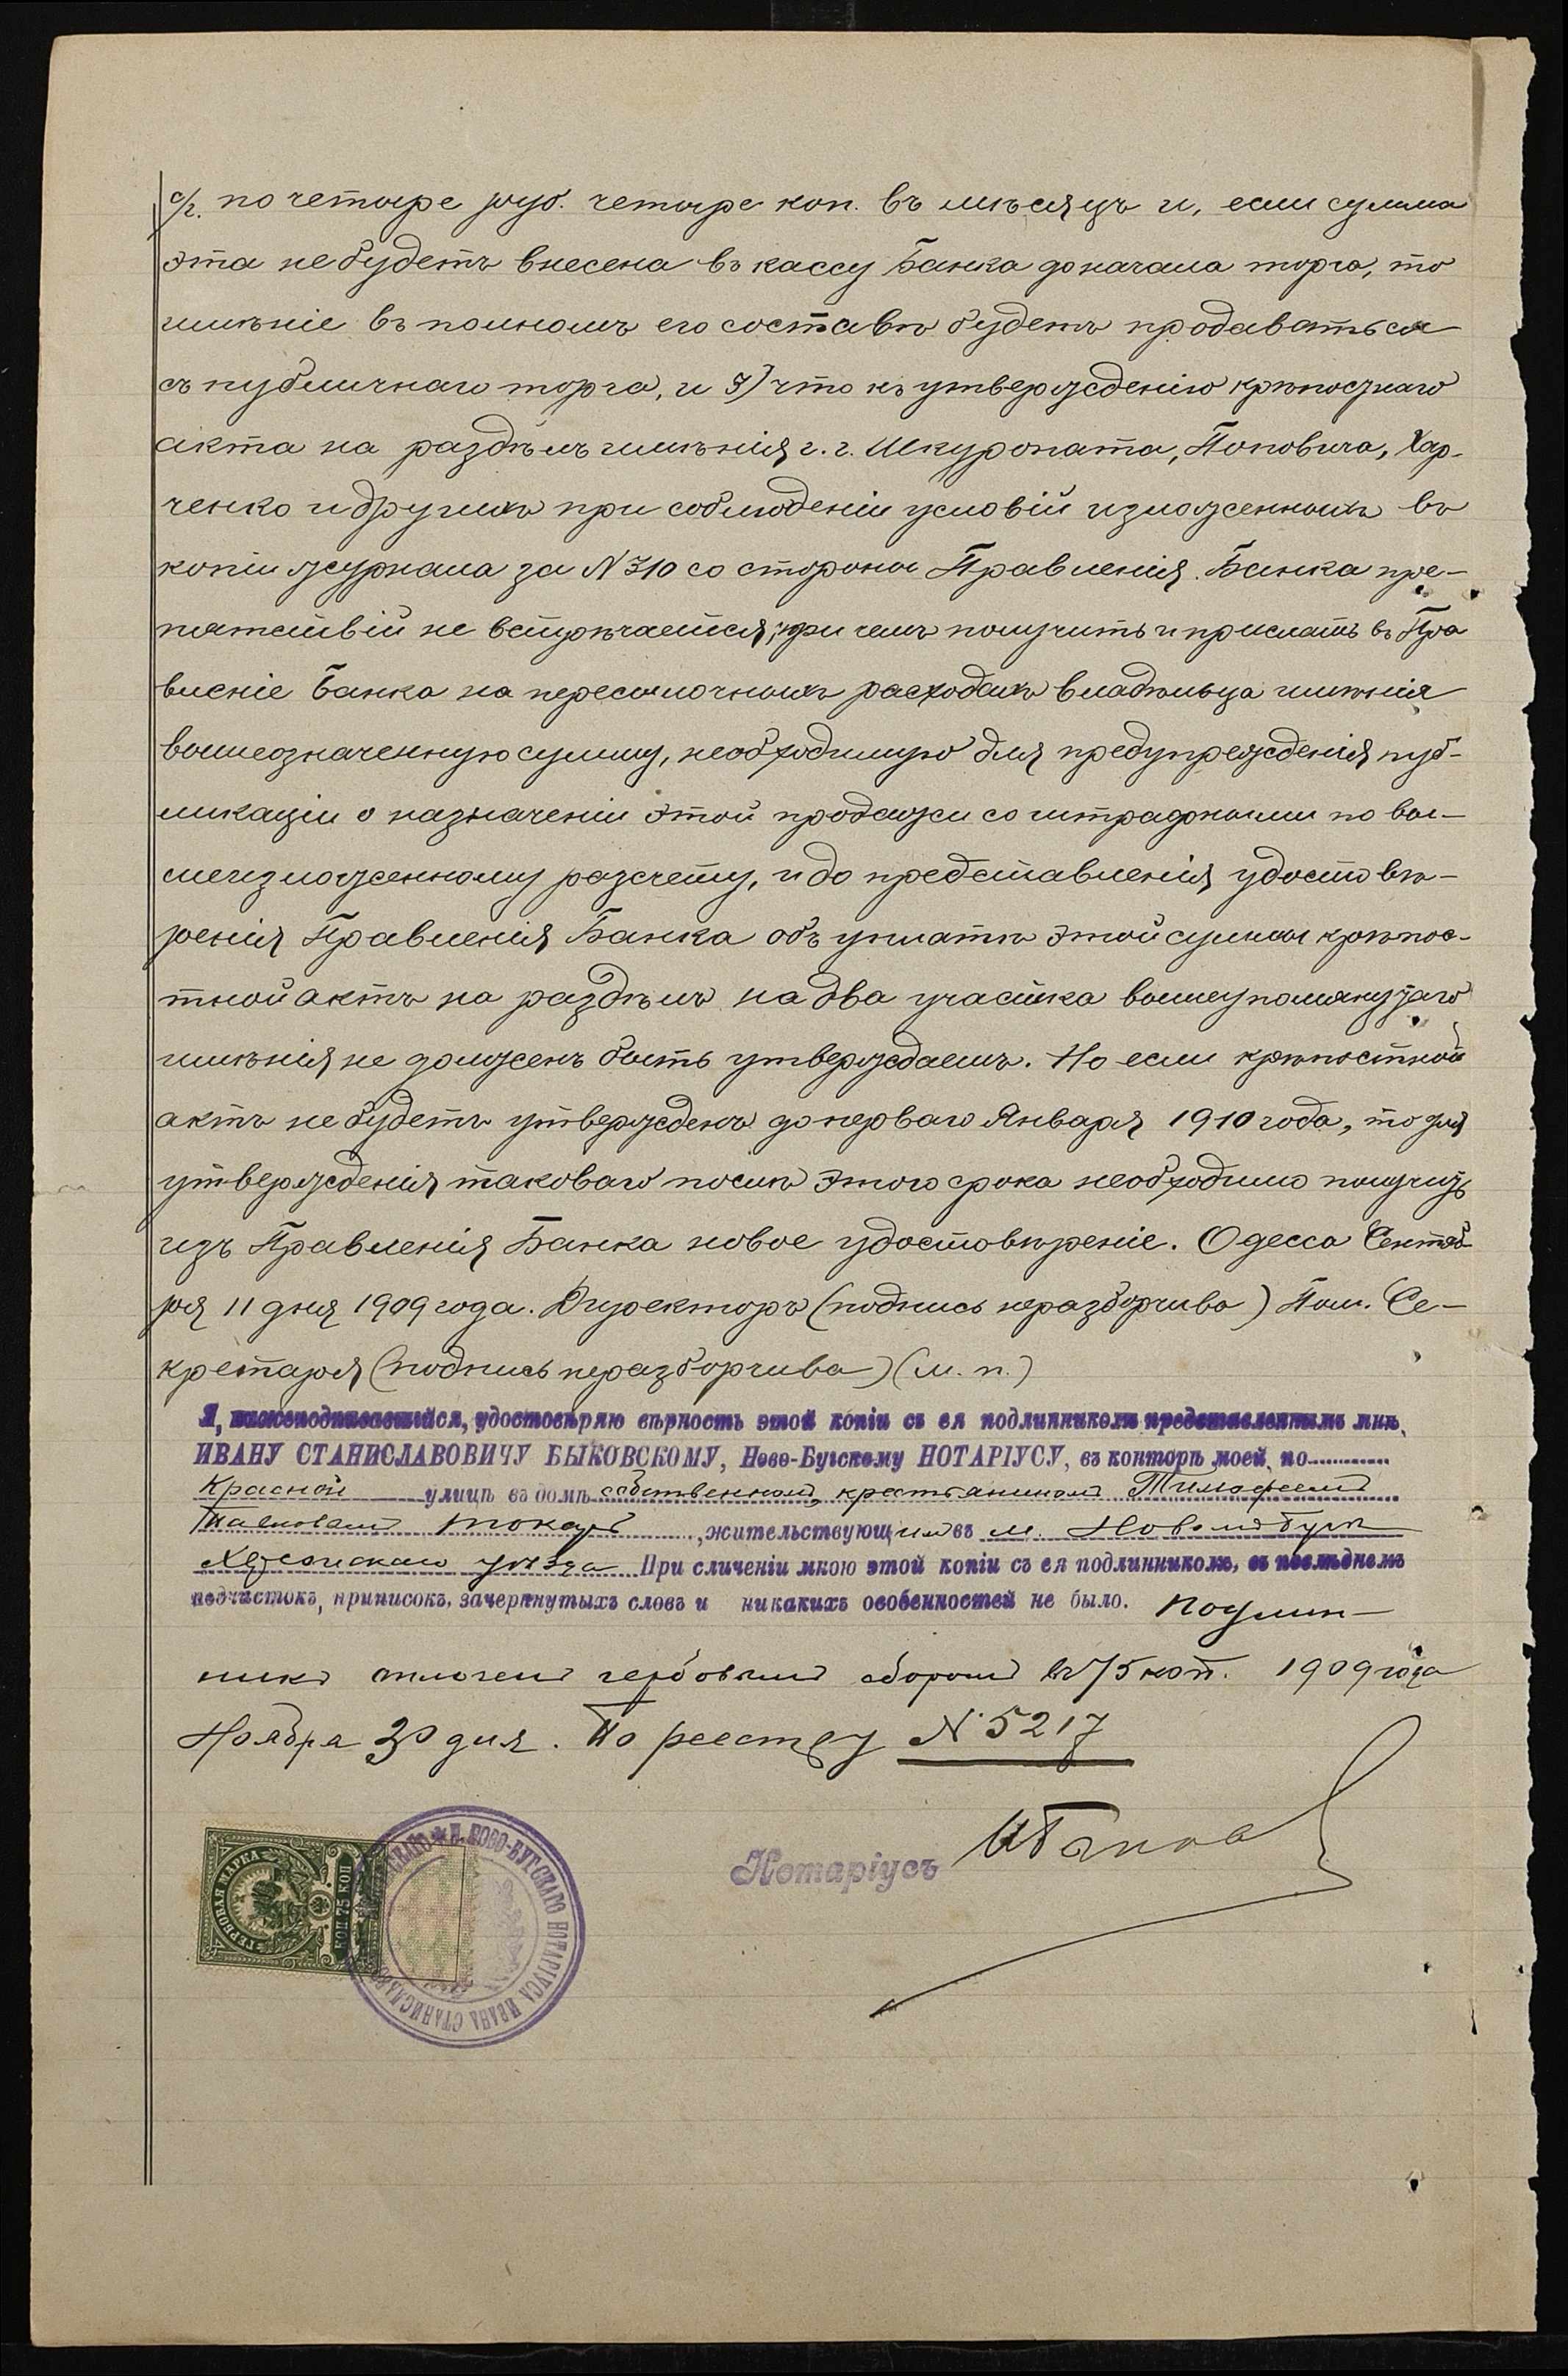 с/г. по четыре руб. четыре коп. въ мѣсяцъ и, если сумма
эта не будетъ внесена въ кассу Банка до начала торга, то
имѣніе въ полномъ его составѣ будетъ продаваться
съ публичнаго торга, и 3) что къ утвержденію крѣпостнаго
акта на раздѣлъ имѣнія г. г. Шкуропата, Поповича, Хар-
ченко и другихъ при соблюденіи условій изложенныхъ въ
копіи журнала за N 310 со стороны Правленія Банка пре-
пятствій не встрѣчается, при чемъ получить и прислать въ Пра
вленіе Банка на пересылочныхъ расходахъ владѣльца имѣнія
вышеозначенную сумму, необходимую для предупрежденія пуб-
ликаціи о назначеніи этой продажи со штрафными по вы-
шеизложенному разсчету, и до представленія удостовѣ-
ренія Правленія Банка объ уплатѣ этой суммы крѣпос-
тной актъ на раздѣлъ на два участка вышеупомянутаго
имѣнія не долженъ быть утверждаемъ. Но если крѣпостной
актъ не будетъ утвержденъ до перваго Января 1910 года, то для
утвержденія таковаго послѣ этого срока необходимо получить
изъ Правленія Банка новое удостовѣреніе. Одесса Сентяб-
ря 11 дня 1909 года. Директоръ (подпись неразборчива) Пом. Се-
кретаря (подпись неразборчива) (м. п.)
Я, нижеподписавшійся, удостовѣряю вѣрность этой копіи съ ея подлинникомъ представленнымъ мнѣ,
ИВАНУ СТАНИСЛАВОВИЧУ БЫКОВСКОМУ, Ново-Бугскому НОТАРІУСУ, въ конторѣ моей, по
Красной улицѣ въ домѣ собственномъ, крестьяниномъ Тимофеемъ
Токарь, жительствующимъ въ м. Новомъ Бугѣ
Херсонскаго уѣзда При сличеніи мною этой копіи съ ея подлинникомъ, въ послѣднемъ
подчистокъ, приписокъ, зачеркнутыхъ словъ и никакихъ особенностей не было. Подлин-
никъ оплоченъ гербовымъ сборомъ въ 75 коп. 1909 года
Ноября 30 дня. По реестру N 5217
Нотаріусъ
ГЕРБОВАЯ МАРКА
КОП 75 КОП
Н. НОВО-БУГСКАГО НОТАРІУСА ИВАНА СТАНИСЛАВОВ